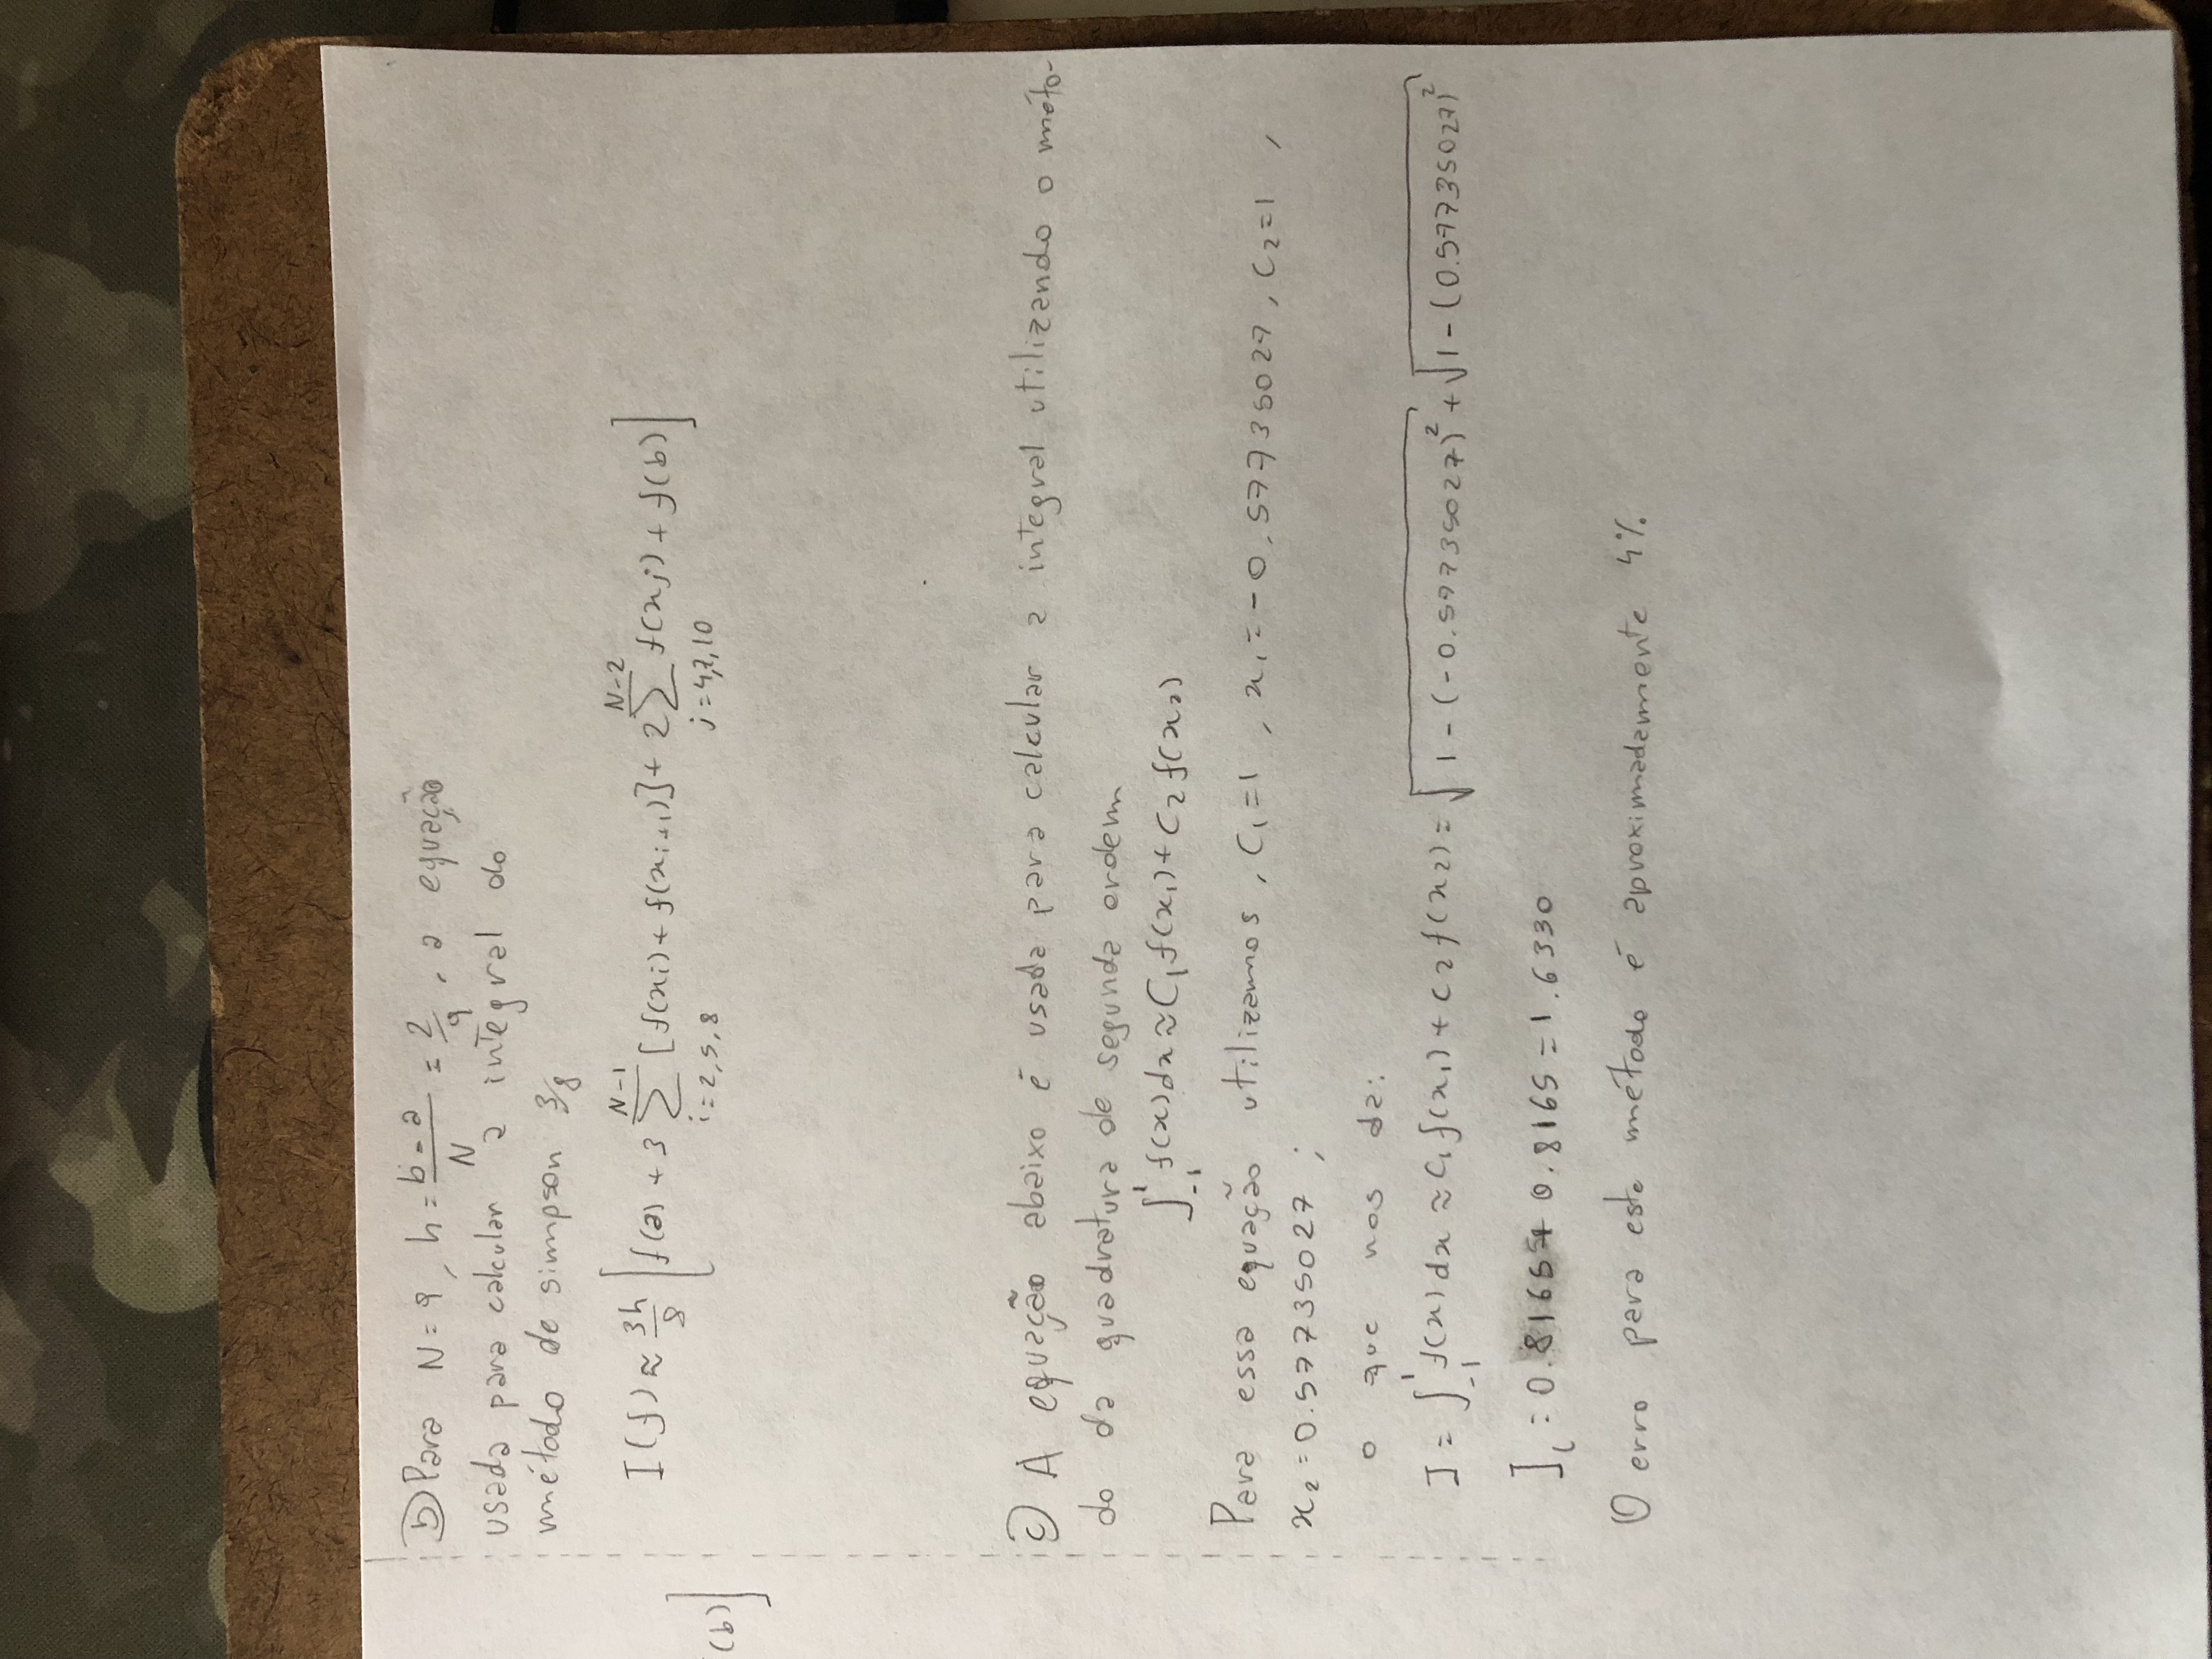 b) Para N = 9, h = \frac{b-a}{N} = \frac{2}{9}, a equação
usada para calcular a integral do
método de simpson 3/8
I(f) ≈ \frac{3h}{8} [f(a) + 3 \sum_{i=2,5,8}^{N-1} [f(x_i) + f(x_{i+1})] + 2 \sum_{j=4,7,10}^{N-2} f(x_j) + f(b)]
(b)]
c) A equação abaixo é usada para calcular a integral utilizando o méto-
do da quadratura de segunda ordem
\int_{-1}^{1} f(x)dx ≈ C_1 f(x_1) + C_2 f(x_2)
Para essa equação utilizamos, C_1 = 1, x_1 = -0.57735027, C_2 = 1,
x_2 = 0.57735027;
o que nos da:
I = \int_{-1}^{1} f(x)dx ≈ C_1 f(x_1) + C_2 f(x_2) = \sqrt{1-(-0.57735027)^2} + \sqrt{1-(0.57735027)^2}
I_i = 0.8165 + 0.8165 = 1.6330
O erro para este método é aproximadamente 4%.